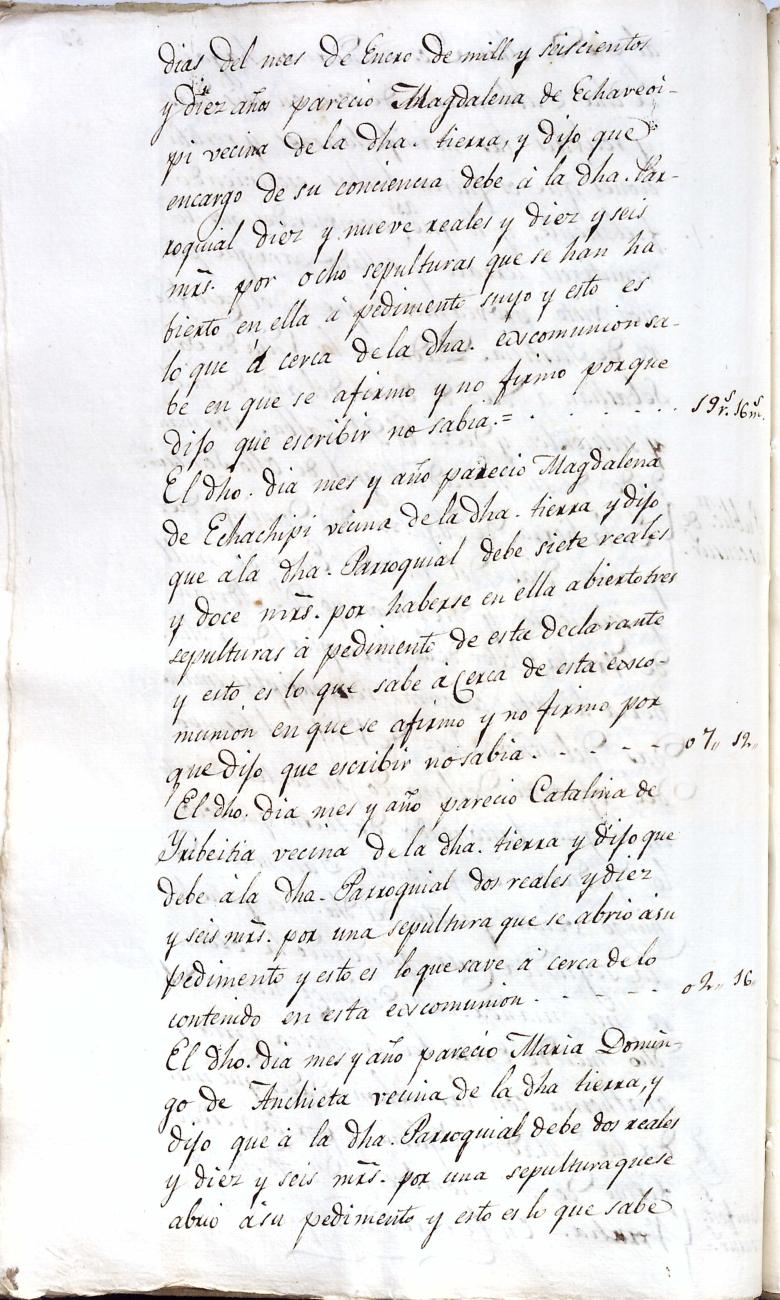 dias del mes de Enero de mill y seiscientos
y diez años parecio Magdalena de Echaveoi-
pi vecina de la dha. tierra, y dijo que
encargo de su conciencia debe à la dha. Par-
roquial diez y nueve reales y diez y seis
mrs. por ocho sepulturas que se han ha
bierto en ella à pedimento suyo y esto es
lo que à cerca de la dha. excomunion sa-
be en que se afirmo y no firmo porque
dijo que escribir no sabia.= . . . . . . 19rs. 16ms.
El dho. dia mes y año parecio Magdalena
de Echachipi vecina de la dha. tierra y dijo
que à la dha. Parroquial debe siete reales
y doce mrs. por haberse en ella abierto tres
sepulturas à pedimento de esta declarante
y esto es lo que sabe à cerca de esta exco-
munion en que se afirmo y no firmo por
que dijo que escribir no sabia. - - - - - 07,, 12,,
El dho. dia mes y año parecio Catalina de
Yribeitia vecina de la dha. tierra y dijo que
debe à la dha. Parroquial dos reales y diez
y seis mrs. por una sepultura que se abrio à su
pedimento y esto es lo que save à cerca de lo
contenido en esta excomunion. - - - - 02,, 16,,
El dho. dia mes y año parecio Maria Domin-
go de Anchieta vecina de la dha tierra, y
dijo que à la dha. Parroquial debe dos reales
y diez y seis mrs. por una sepultura que se
abrio à su pedimento y esto es lo que sabe